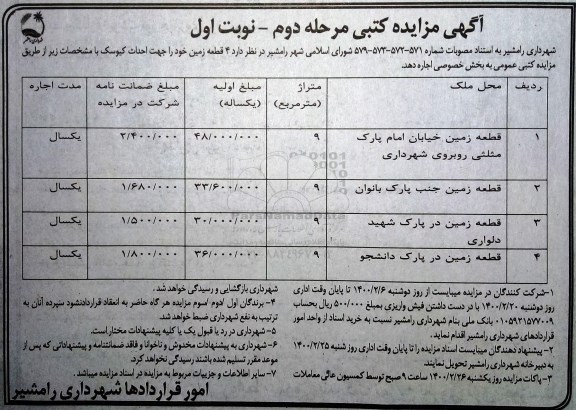 آگهی مزایده کتبی مرحله دوم - نوبت اول
شهرداری رامشیر به استناد مصوبات شماره ۵۷۱-۵۷۲-۵۷۳-۵۷۹ شورای اسلامی شهر رامشیر در نظر دارد ۴ قطعه زمین خود را جهت احداث کیوسک با مشخصات زیر از طریق
مزایده کتبی عمومی به بخش خصوصی اجاره دهد.
ردیف محل ملک متراژ (مترمربع) مبلغ اولیه (یکساله) مبلغ ضمانت نامه شرکت در مزایده مدت اجاره
۱ قطعه زمین خیابان امام پارک مثلثی روبروی شهرداری ۹ ۴۸/۰۰۰/۰۰۰ ۲/۴۰۰/۰۰۰ یکسال
۲ قطعه زمین جنب پارک بانوان ۹ ۳۳/۶۰۰/۰۰۰ ۱/۶۸۰/۰۰۰ یکسال
۳ قطعه زمین در پارک شهید دلواری ۹ ۳۰/۰۰۰/۰۰۰ ۱/۵۰۰/۰۰۰ یکسال
۴ قطعه زمین در پارک دانشجو ۹ ۳۶/۰۰۰/۰۰۰ ۱/۸۰۰/۰۰۰ یکسال
۱-شرکت کنندگان در مزایده میبایست از روز دوشنبه ۱۴۰۰/۲/۶ تا پایان وقت اداری
روز دوشنبه ۱۴۰۰/۲/۲۰ با در دست داشتن فیش واریزی بمبلغ ۵۰۰/۰۰۰ ریال بحساب
۰۱۰۵۹۲۱۵۷۷۰۰۹ بانک ملی بنام شهرداری رامشیر نسبت به خرید اسناد از واحد امور
قراردادهای شهرداری رامشیر اقدام نماید.
۲- پیشنهاد دهندگان میبایست اسناد مزایده را تا پایان وقت اداری روز شنبه ۱۴۰۰/۲/۲۵
به دبیرخانه شهرداری رامشیر تحویل نمایند.
۳-پاکات مزایده روز یکشنبه ۱۴۰۰/۲/۲۶ ساعت ۹ صبح توسط کمسیون عالی معاملات
شهرداری بازگشایی و رسیدگی خواهد شد.
۴- برندگان اول /دوم /سوم مزایده هر گاه حاضر به انعقاد قرارداد نشود سپرده آنان به
ترتیب به نفع شهرداری ضبط خواهد شد.
۵-شهرداری در رد یا قبول یک یا کلیه پیشنهادات مختار است.
۶-شهرداری به پیشنهادات مخدوش و ناخوانا و فاقد ضمانتنامه و پیشنهاداتی که پس از
موعد مقرر تسلیم شده باشند رسیدگی نخواهد کرد.
۷- سایر اطلاعات و جزییات مربوط به مزایده در اسناد مزایده میباشد.
امور قراردادها شهرداری رامشیر